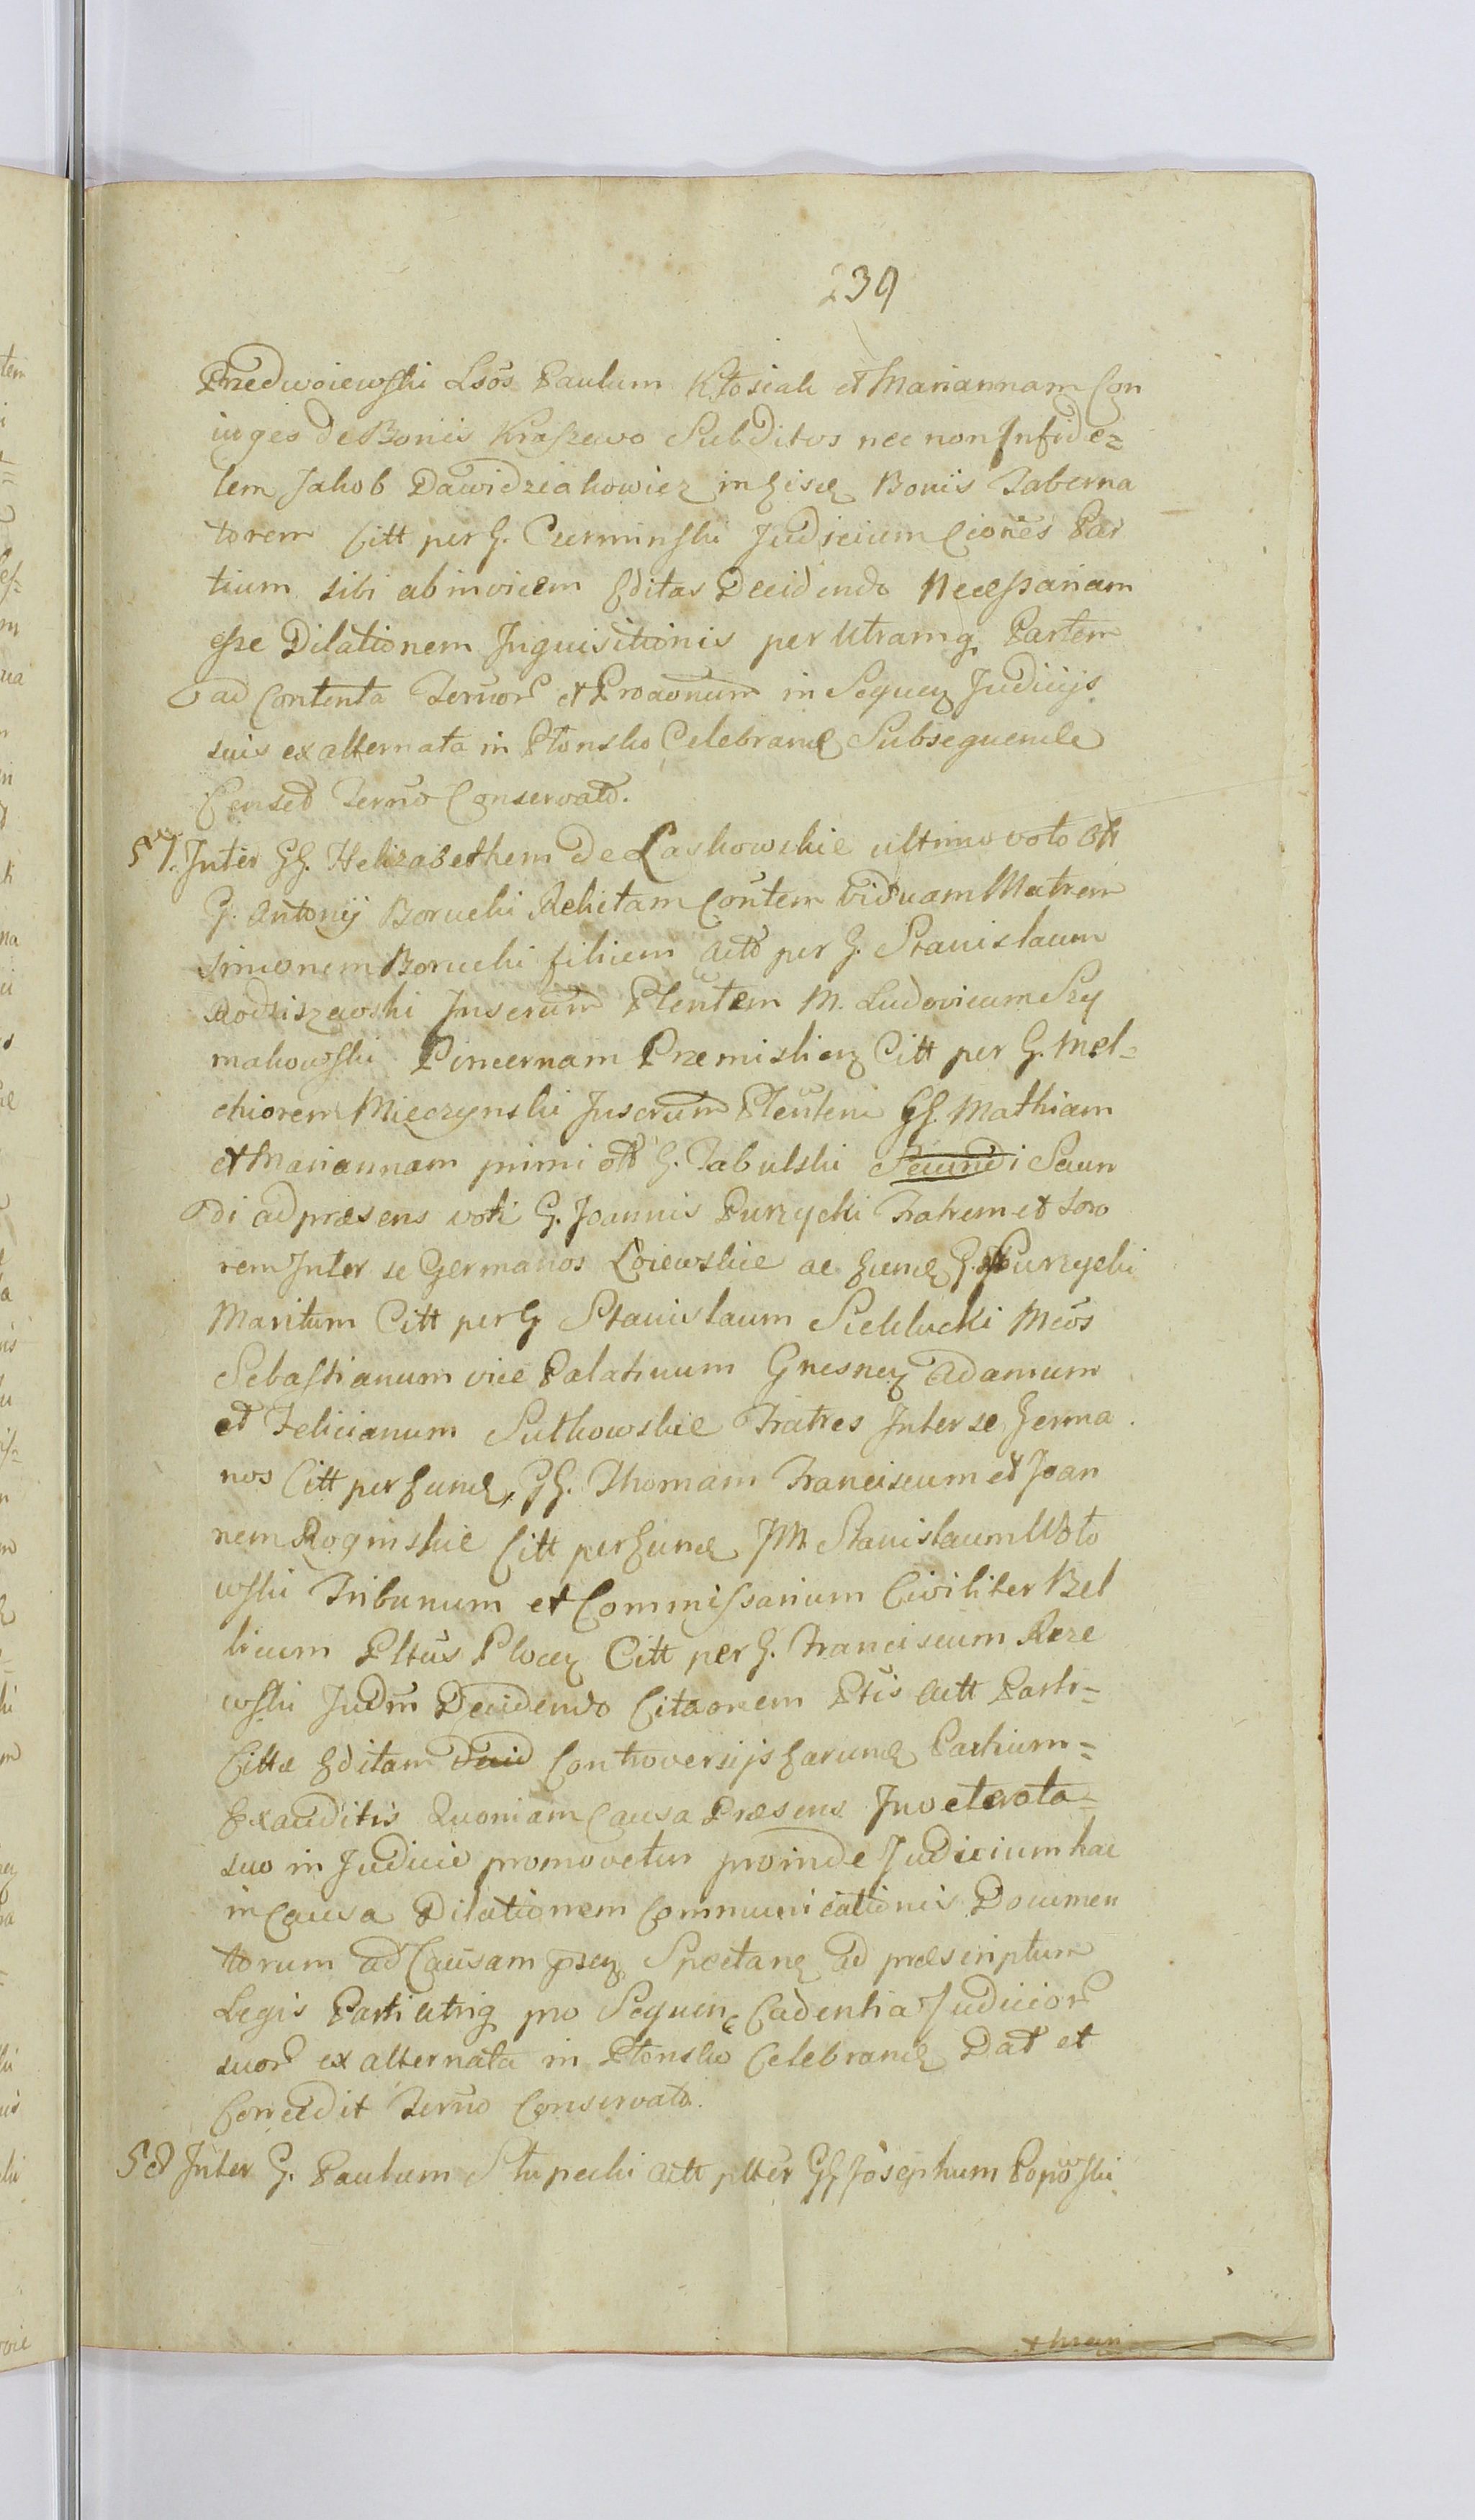 239
Przedwoiewski Lsos Paulum Kłosiak et Mariannam Con
iuges de Bonis Kraszewo Subditos nec non Infide=
lem Jakob Dawidziakowicz in Eisd Bonis Taberna
torem Citt per G. Czerminski Judicium Ciones Par
tium sibi ab invicem Editas Decidendo Necessariam
esse Dilationem Inquisitionis per Utramq Partem
ad Contenta Termor et Proaonum in Sequen Judicijs
suis ex alternata in Płonsko Celebrand Subsequende
Censet Termo Conservato.
57. Inter GG. Helizabethem de Laskowskie ultimo voto Olt
G. Antonij Borucki Relictam Contem Viduam Matrem
Simonem Borucki filium Actt per G. Stanislaum
Rodziszewski Juserum Plentem M. Ludovicum Szy
makowski Pincernam Premislien Citt per G. Mel=
chiorem Mieczynski Juserum Plentem GG. Mathiam
et Mariannam primi olt G. Tabulski Secundi Secun
di ad præsens voti G. Joannis Purzycki Fratrem et Soro
rem Inter se Germanos Łoiewskie ac Eund G. Purzycki
Maritum Citt per G Stanislaum Siekłucki Mcos
Sebastianum vice Palatinum Gnesnen Adamum
et Felicianum Sutkowskie Fratres Inter se Germa
nos Citt per Eund, GG. Thomam Franciscum et Joan
nem Roginskie Citt per Eund JM Stanislaum Woto
wski Tribunum et Commissarium Civiliter Bel
licum Pltus Plocen Citt per G. Franciscum Rze
wski Judm Decidendo Citaonem Ptis Actt Parti=
Cittæ Editam Controversijs Earund Partium=
Exauditis Quoniam Causa Præsens Inveterata
suo in Judicio promovetur proinde Judicium hac
in Causa Dilationem Communicationis Documen
torum ad Causam psen Spectan ad præscriptum
Legis Parti utriq pro Sequen Cadentia Judicior
suor ex alternata in Płonsko Celebrand Dat et
Concedit Termo Conservato.
58 Inter G. Paulum Słupecki Actt plter GG Josephum Popowski